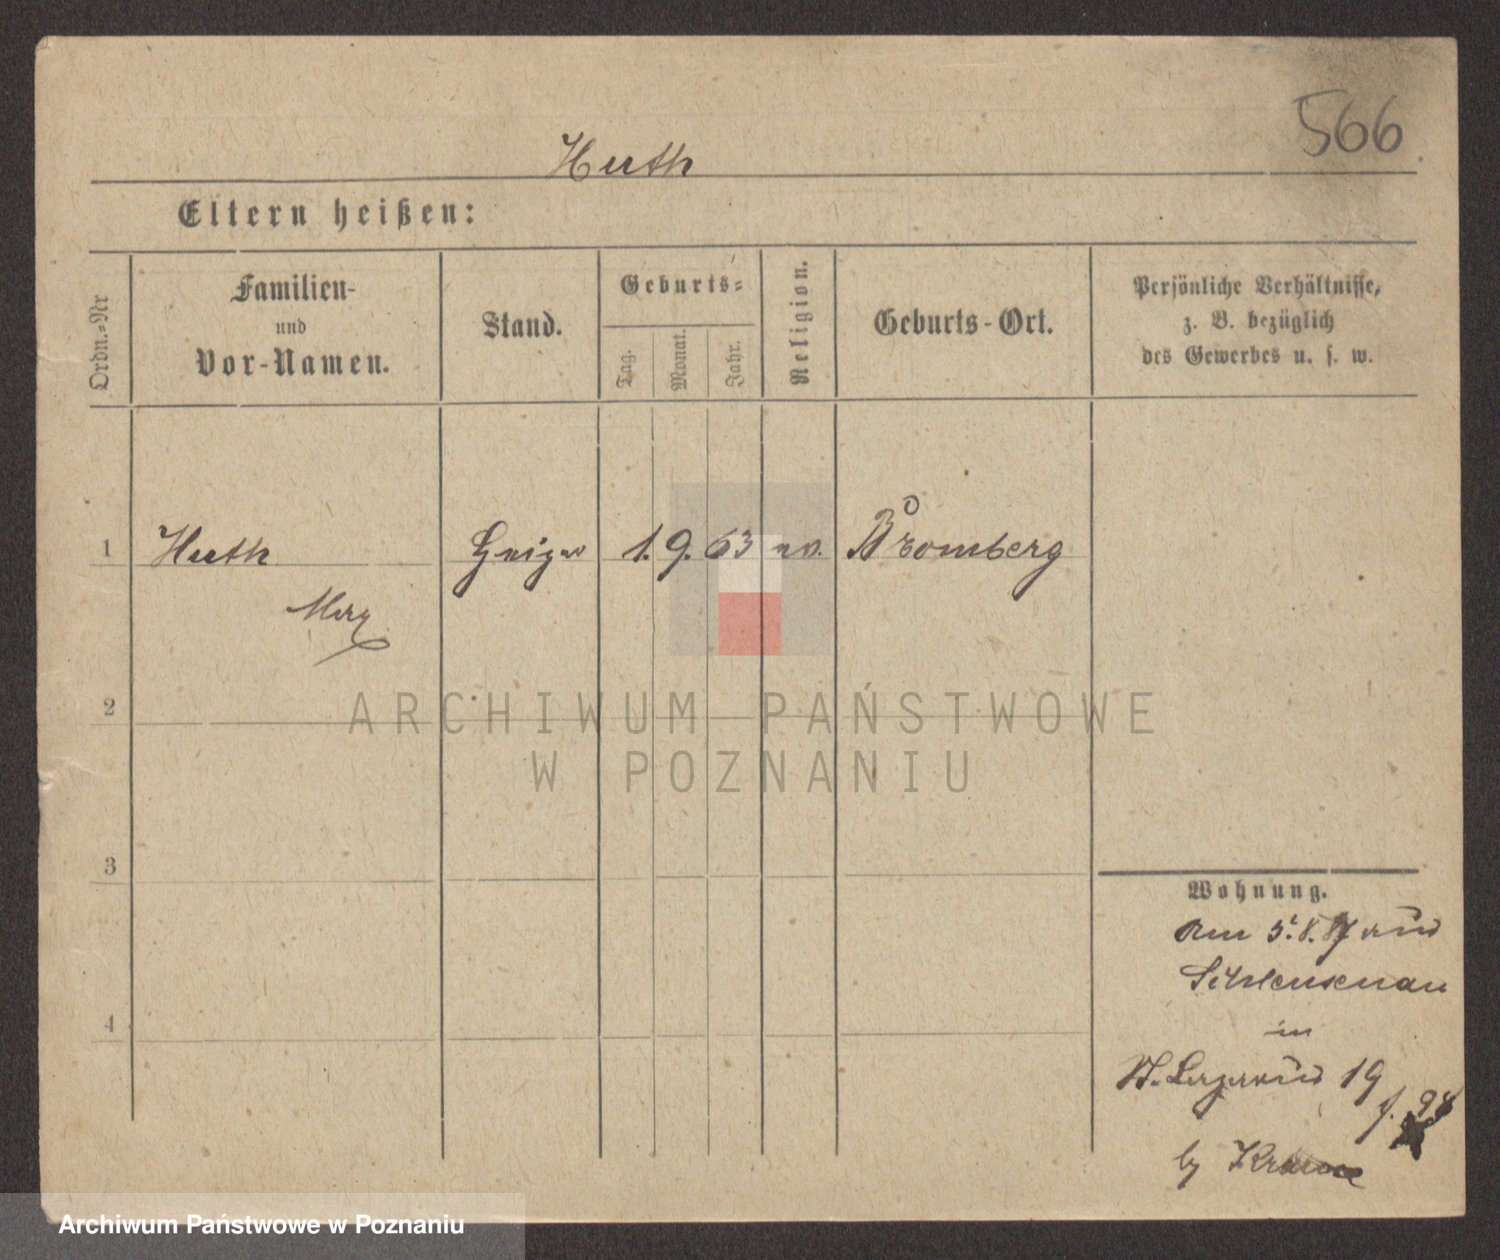 566
Huth
Eltern heißen:
Ordn.-Nr
Familien-
und
Vor-Namen.
Stand.
Geburts-
Tag.
Monat.
Jahr.
Religion.
Geburts-Ort.
Persönliche Verhältnisse,
z. B. bezüglich
des Gewerbes u. s. w.
1 Huth 1. 9. 63 ev. Bromberg
Max
2
3
4
Wohnung.
Am 5. 8. aus
Schleusenau
in
St. Lazarus 19
by
ARCHIWUM PAŃSTWOWE
W POZNANIU
Archiwum Państwowe w Poznaniu